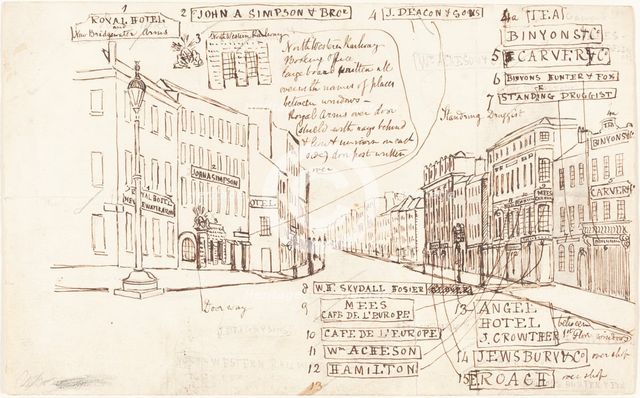 1
ROYAL HOTEL
and
New Bridgewater Arms
2 JOHN A SIMPSON & Bror
3
North Western Railway
4 J. DEACON & SONS
4a TEA
BINYONS & Co
5 CARVER & Co
6 BINYONS HUNTER Y FOX
OR
7 STANDING DRUGGIST
Standring Druggist
North Western Railway
Booking Office
large board written all
over with names of places
between windows –
Royal Arms over door
Shield with rays behind
& Lion & unicorn on each
side) door post written
over
2
JOHN A SIMPSON
1
ROYAL HOTEL
NEW
BRIDGEWATER ARMS
HOTEL
MEES
4a
BINYONS
CARVER
Doorway
8 W. E. SKYDALL HOSIER GLOVER
9 MEES
CAFE DE L'EUROPE
10 CAFE DE L'EUROPE
11 Wm ACHESON
12 HAMILTON
13
13 ANGEL
HOTEL
J. CROWTHER
between
1st floor windows
14 JEWSBURY & Co over shop
15 ROACH over shop